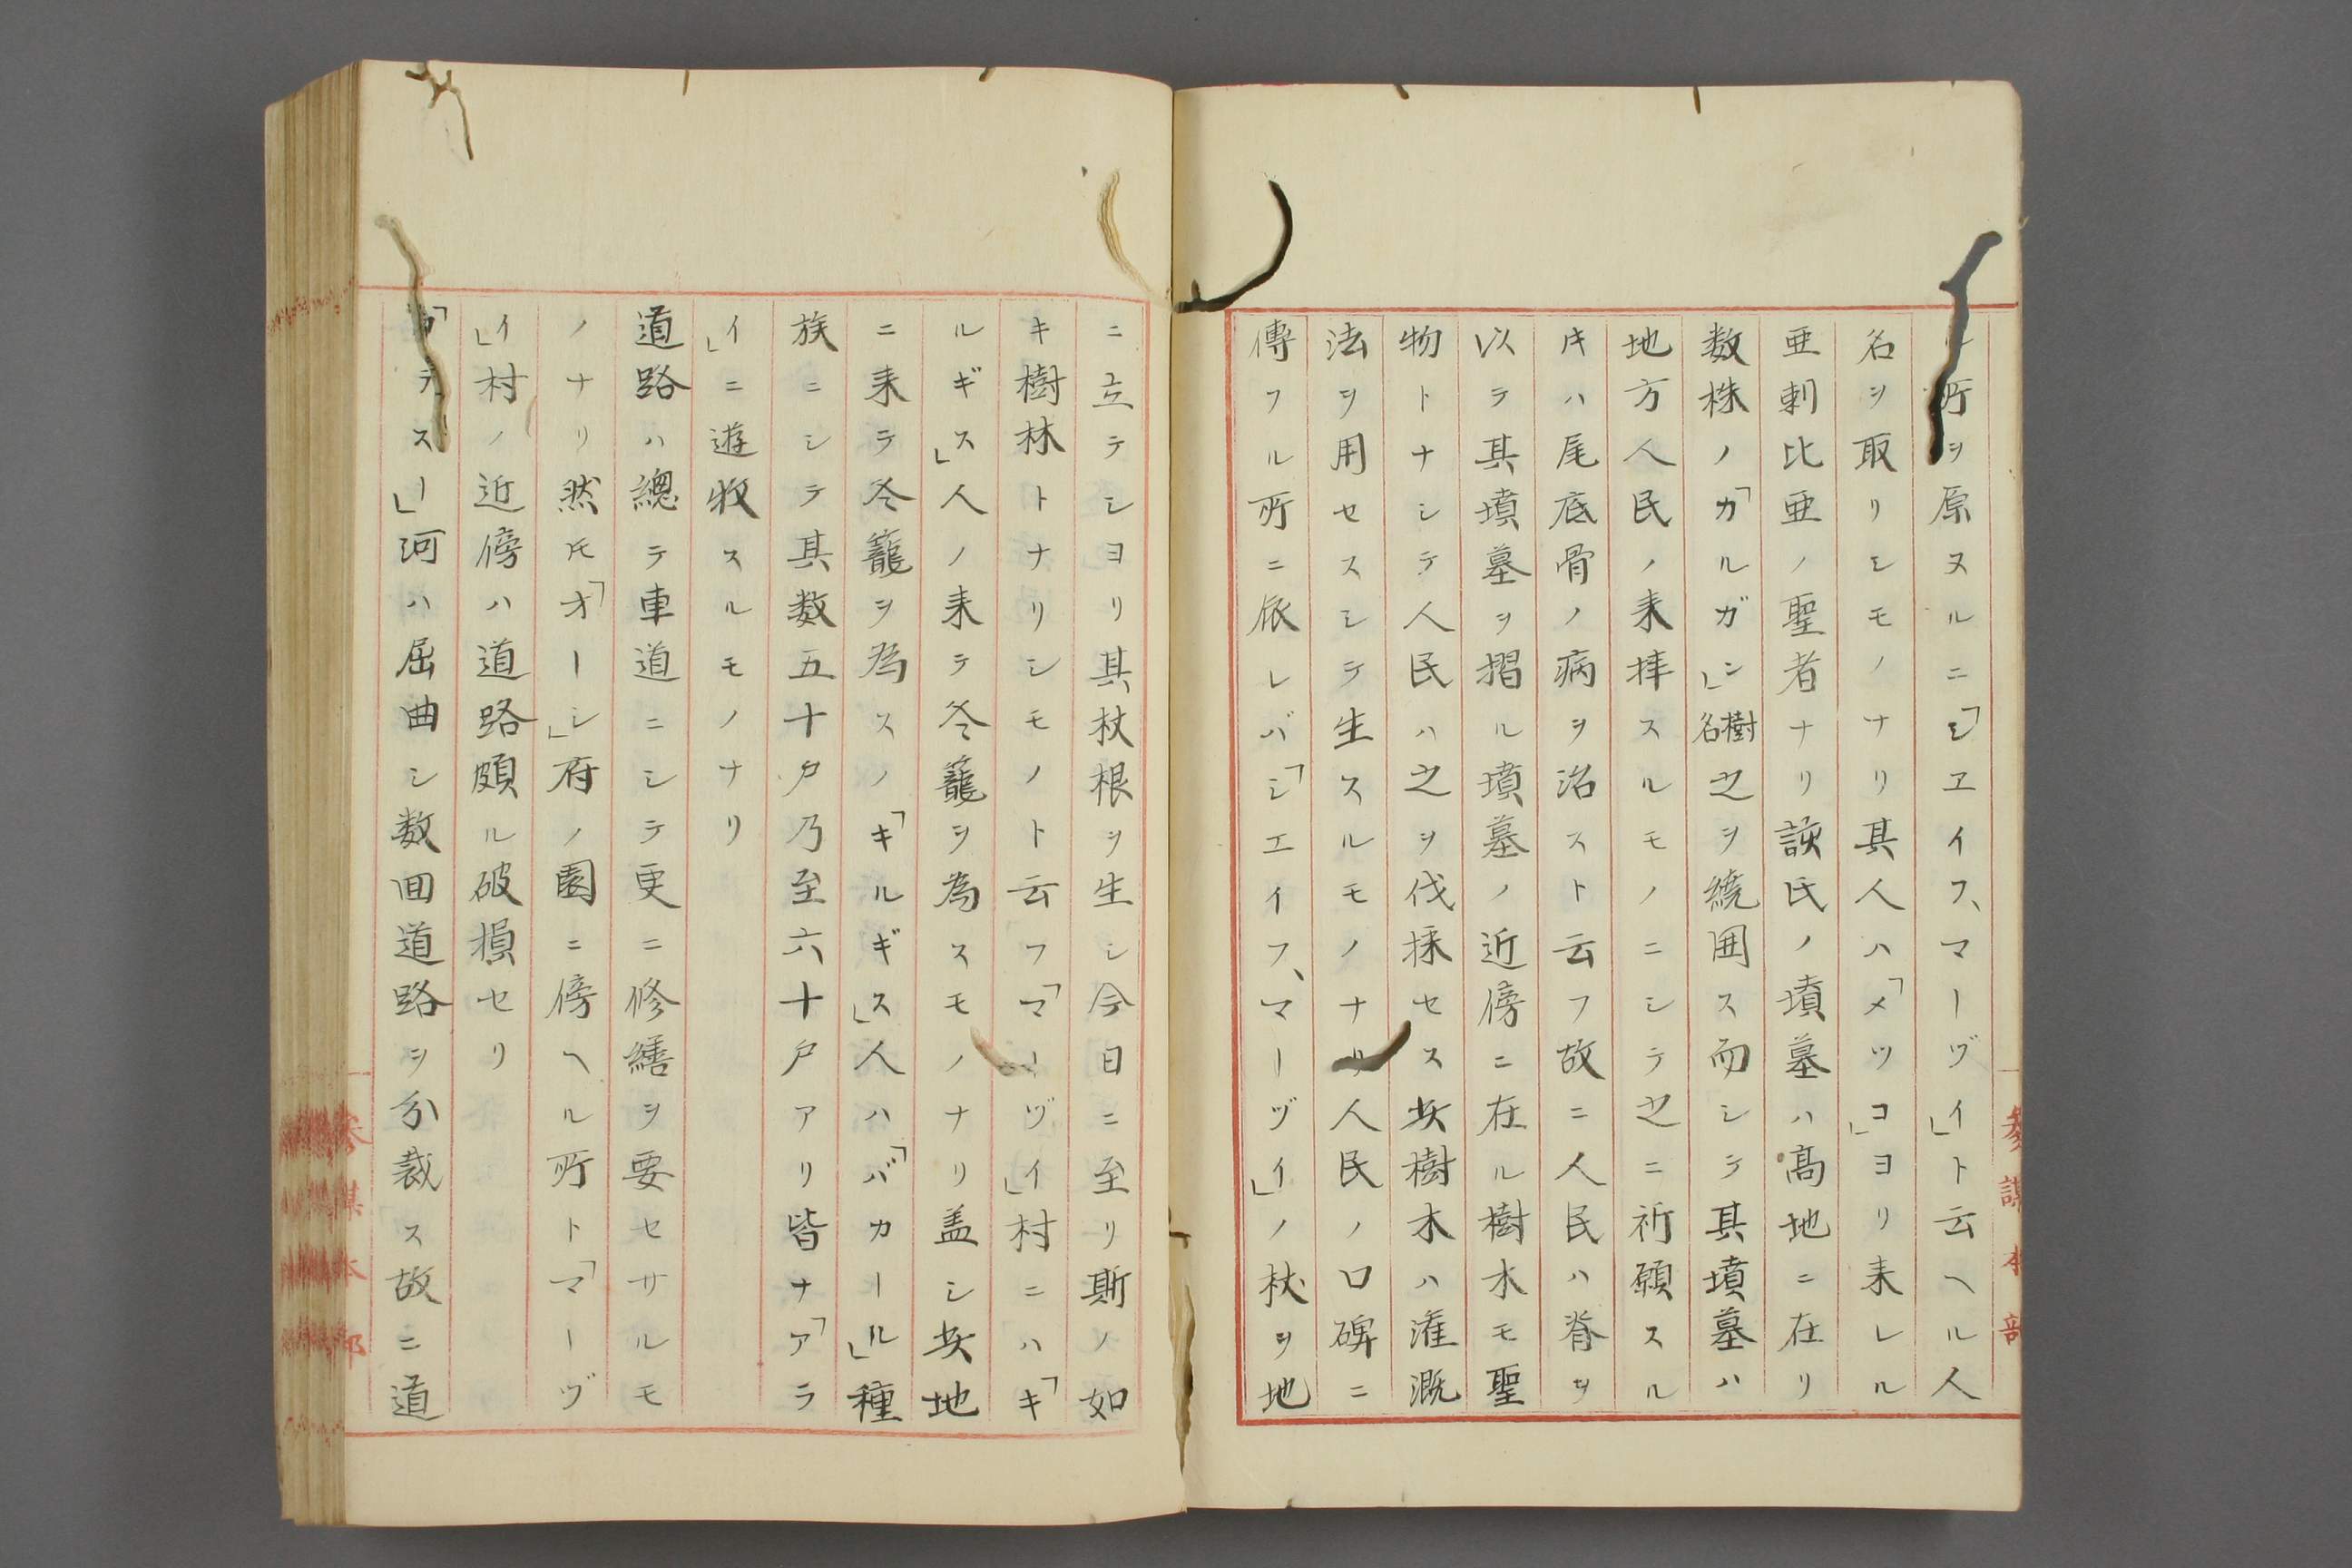 ル所ヲ原ヌルニ「シエイフ、マーヅイ」ト云ヘル人
名ヲ取リシモノナリ其人ハ「メツコ」ヨリ来レル
亜剌比亜ノ聖者ナリ該氏ノ墳墓ハ高地ニ在リ
数株ノ「カルガン」樹名之ヲ繞囲ス而シテ其墳墓ハ
地方人民ノ来拝スルモノニシテ之ニ祈願スル
片ハ尾底骨ノ病ヲ治スト云フ故ニ人民ハ脊ヲ
以テ其墳墓ヲ摺ル墳墓ノ近傍ニ在ル樹木モ聖
物トナシテ人民ハ之ヲ伐採セス此樹木ハ潅漑
法ヲ用セスシテ生スルモノナリ人民ノ口碑ニ
傳フル所ニ依レバ「シエイフ、マーヅイ」ノ杖ヲ地
ニ立テシヨリ其杖根ヲ生シ今日ニ至リ斯ノ如
キ樹林トナリシモノト云フ「マーヅイ」村ニハ「キ
ルギス」人ノ来テ冬籠ヲ為スモノナリ盖シ此地
ニ来テ冬籠ヲ為スノ「キルギス」人ハ「バカール」種
族ニシテ其数五十戸乃至六十戸アリ皆ナ「アラ
イ」ニ遊牧スルモノナリ
道路ハ總テ車道ニシテ更ニ修繕ヲ要セサルモ
ノナリ然𪜈「オーシ」府ノ園ニ傍ヘル所ト「マーヅ
イ」村ノ近傍ハ道路頗ル破損セリ
ラスー」河ハ屈曲シ数回道路ヲ分裁ス故ニ道
參謀本部
參謀本部